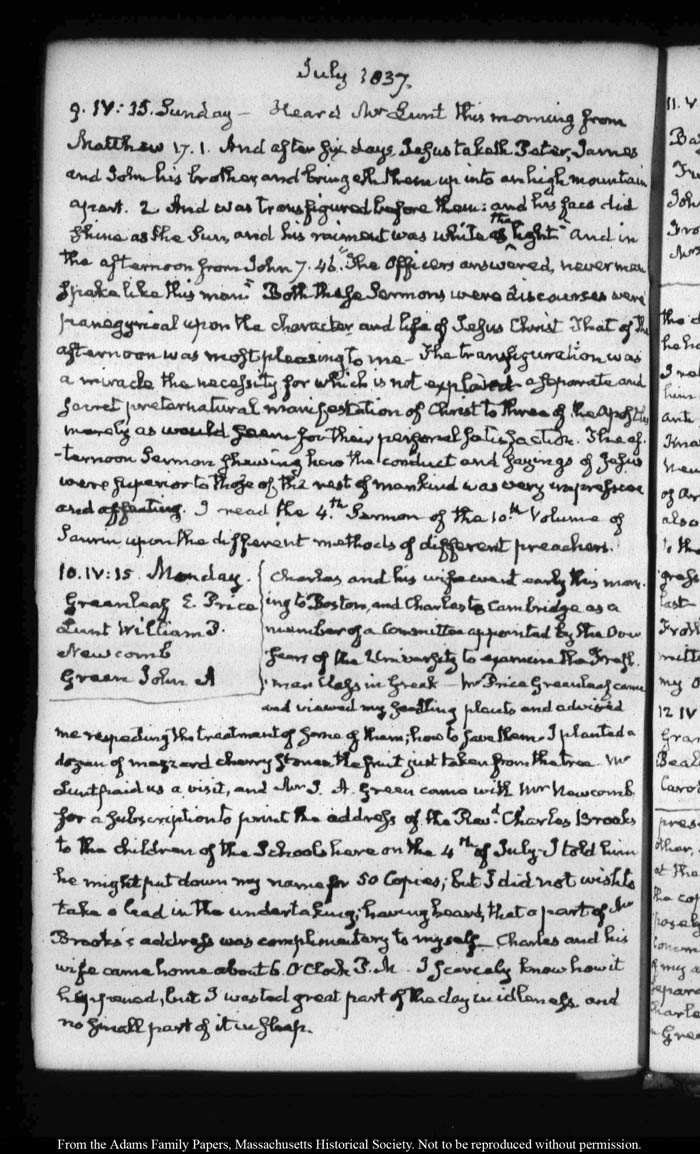 July 1837.
9. IV:15. Sunday — Heard Mr Lunt this morning from
Matthew 17. 1. And after six days Jesus taketh Peter, James
and John his brother, and bringeth them up into an high mountain
apart. 2 And was transfigured before them: and his face did
shine as the Sun, and his raiment was white as the light" And in
the afternoon from John 7. 46 "The Officers answered, never man
spake like this man" Both these Sermons were discourses were
panegyrical upon the character and life of Jesus Christ That of the
afternoon was most pleasing to me — The transfiguration was
a miracle the necessity for which is not explained a separate and
secret preternatural manifestation of Christ to three of the Apostles
merely as would seem for their personal satisfaction. The af-
-ternoon Sermon shewing how the conduct and sayings of Jesus
were superior to those of the rest of mankind was very impressive
and affecting. I read the 4.th Sermon of the 10.th Volume of
Saurin upon the different methods of different preachers.
10. IV:15. Monday.
Greenleaf E. Price
Lunt William P.
Newcomb
Green John A
Charles and his wife went early this mor-
ing to Boston, and Charles to Cambridge as a
member of a Committee appointed by the Over
seers of the University to examine the Fresh-
man Class in Greek — Mr Price Greenleaf came
and viewed my seedling plants and advised
me respecting the treatment of some of them; how to save them. I planted a
dozen of mazzard cherry stones, the fruit just taken from the tree — Mr
Lunt paid us a visit, and Mr J. A. Green came with Mr Newcomb
for a subscription to print the address of the Rev.d Charles Brooks
to the children of the Schools here on the 4th of July — I told him
he might put down my name for 50 Copies; but I did not wish to
take a lead in the undertaking; having heard, that a part of Mr
Brooks's address was complimentary to myself — Charles and his
wife came home about 6. O'Clock P.M — I scarcely know how it
happened, but I wasted great part of the day in idleness and
no small part of it in sleep.
From the Adams Family Papers, Massachusetts Historical Society. Not to be reproduced without permission.